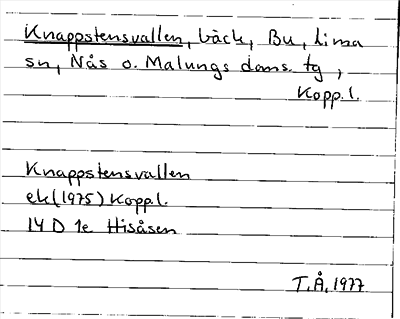 Knappstensvallen, bäck, Bu, Lima
sn, Nås o. Malungs doms. tg,
Kopp.l.
Knappstensvallen
ek (1975) Kopp.l.
14 D 1e Hisåsen
T.Å. 1977